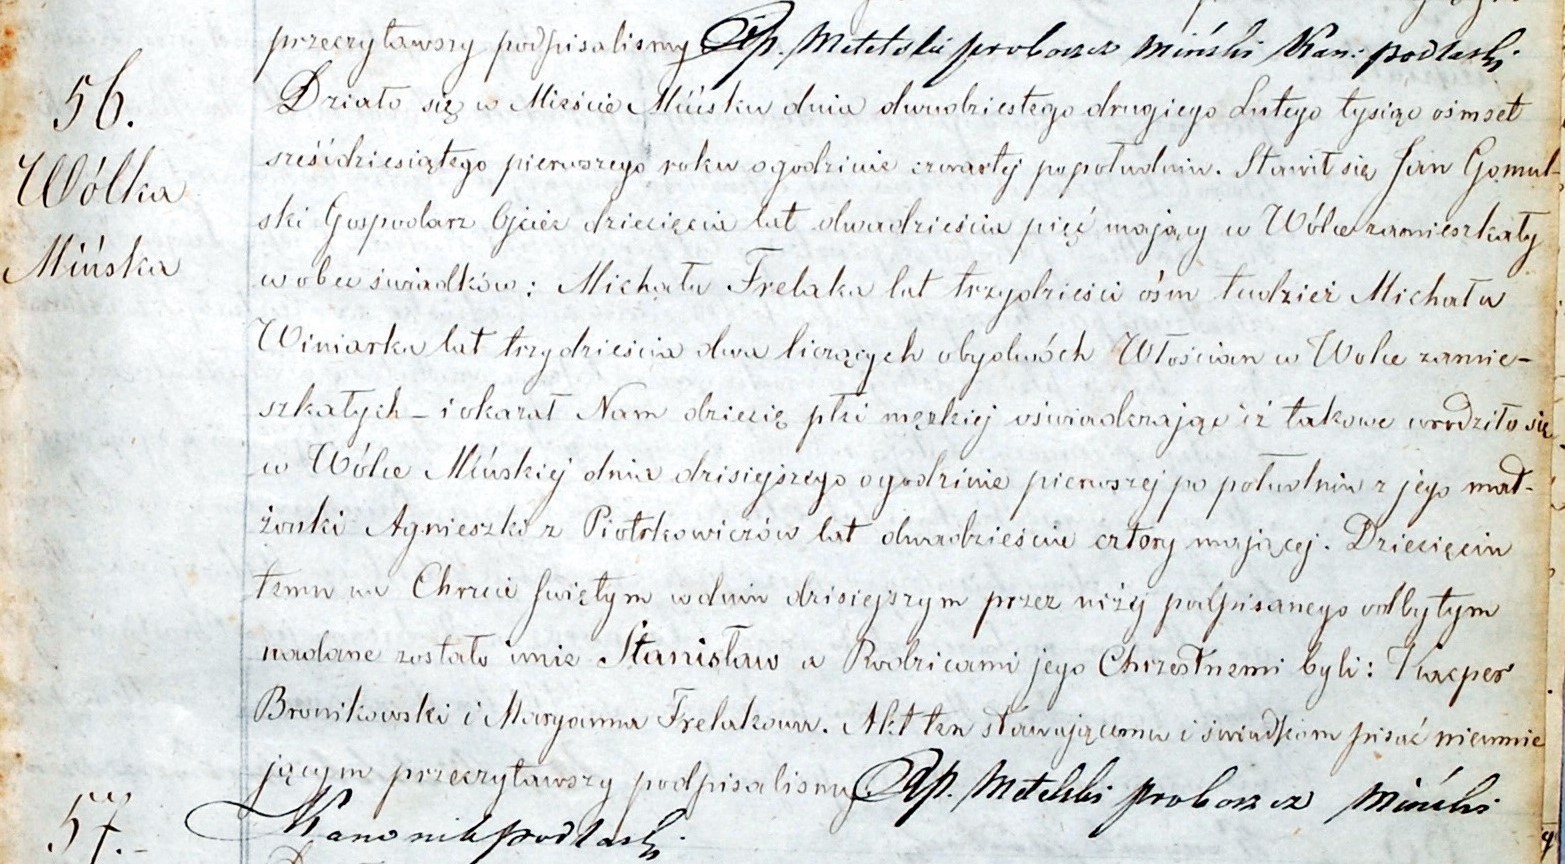 przeczytawszy podpisalismy Xp. Metelski proboszcz Miński Kan: podlaski
56.
Wólka
Mińska
Działo się w Mieście Mińsku dnia dwudziestego drugiego Lutego tysiąc ośmset
sześćdziesiątego pierwszego roku o godzinie czwartej popołudniu. Stawił się Jan Gomul-
ski Gospodarz Ojciec dziecięcia lat dwadzieścia pięć mający w Wólce zamieszkały
w obec świadków: Michała Frelaka lat trzydzieści ośm tudzież Michała
Winiarka lat trzydzieścia dwa liczących obydwóch Włościan w Wolce zamie-
szkałych - i okazał Nam dziecię płci męzkiej oświadczając iż takowe urodziło się
w Wólce Mińskiej dnia dzisiejszego o godzinie pierwszej po południu z jego mał-
żonki Agnieszki z Piotrkowiczów lat dwadzieścia cztory mającej. Dziecięciu
temu na Chrzcie świętym w dniu dzisiejszym przez niżej podpisanego odbytym
nadane zostało imie Stanisław a Rodzicami jego Chrzestnemi byli: Kacper
Bronikowski i Maryanna Frelakowa. Akt ten stawającemu i świadkom pisać nieumie
jącym przeczytawszy podpisalismy Xp. Metelski proboszcz Miński
57. Kanonik podlaski